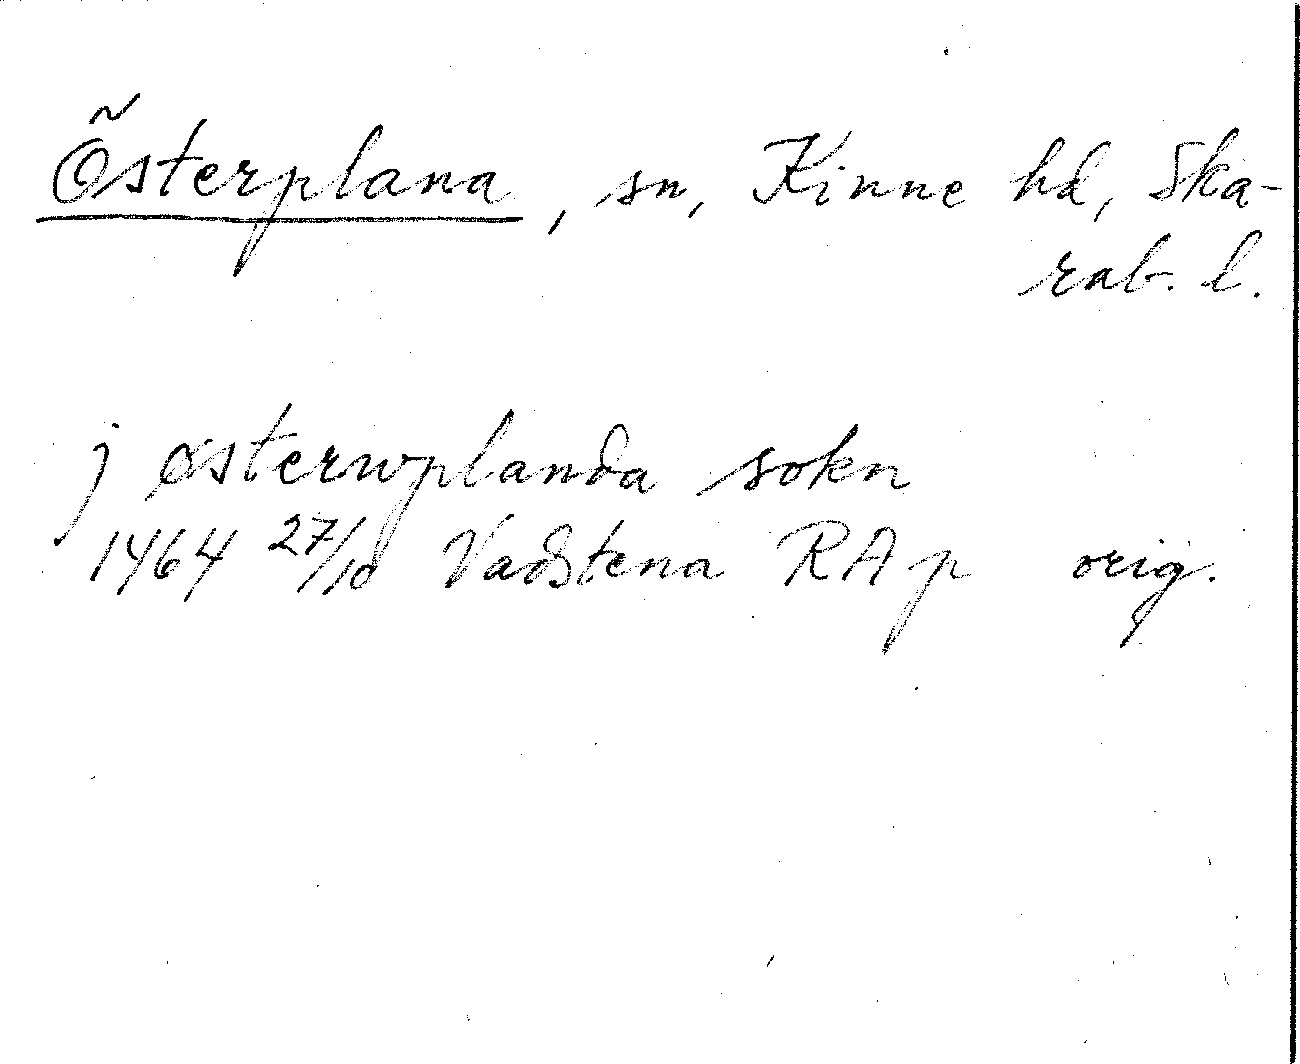 Österplana, sn, Kinne hd, Ska-
rab. l.
j østerwplanda sokn
1464 27/10 Vadstena RAp orig.